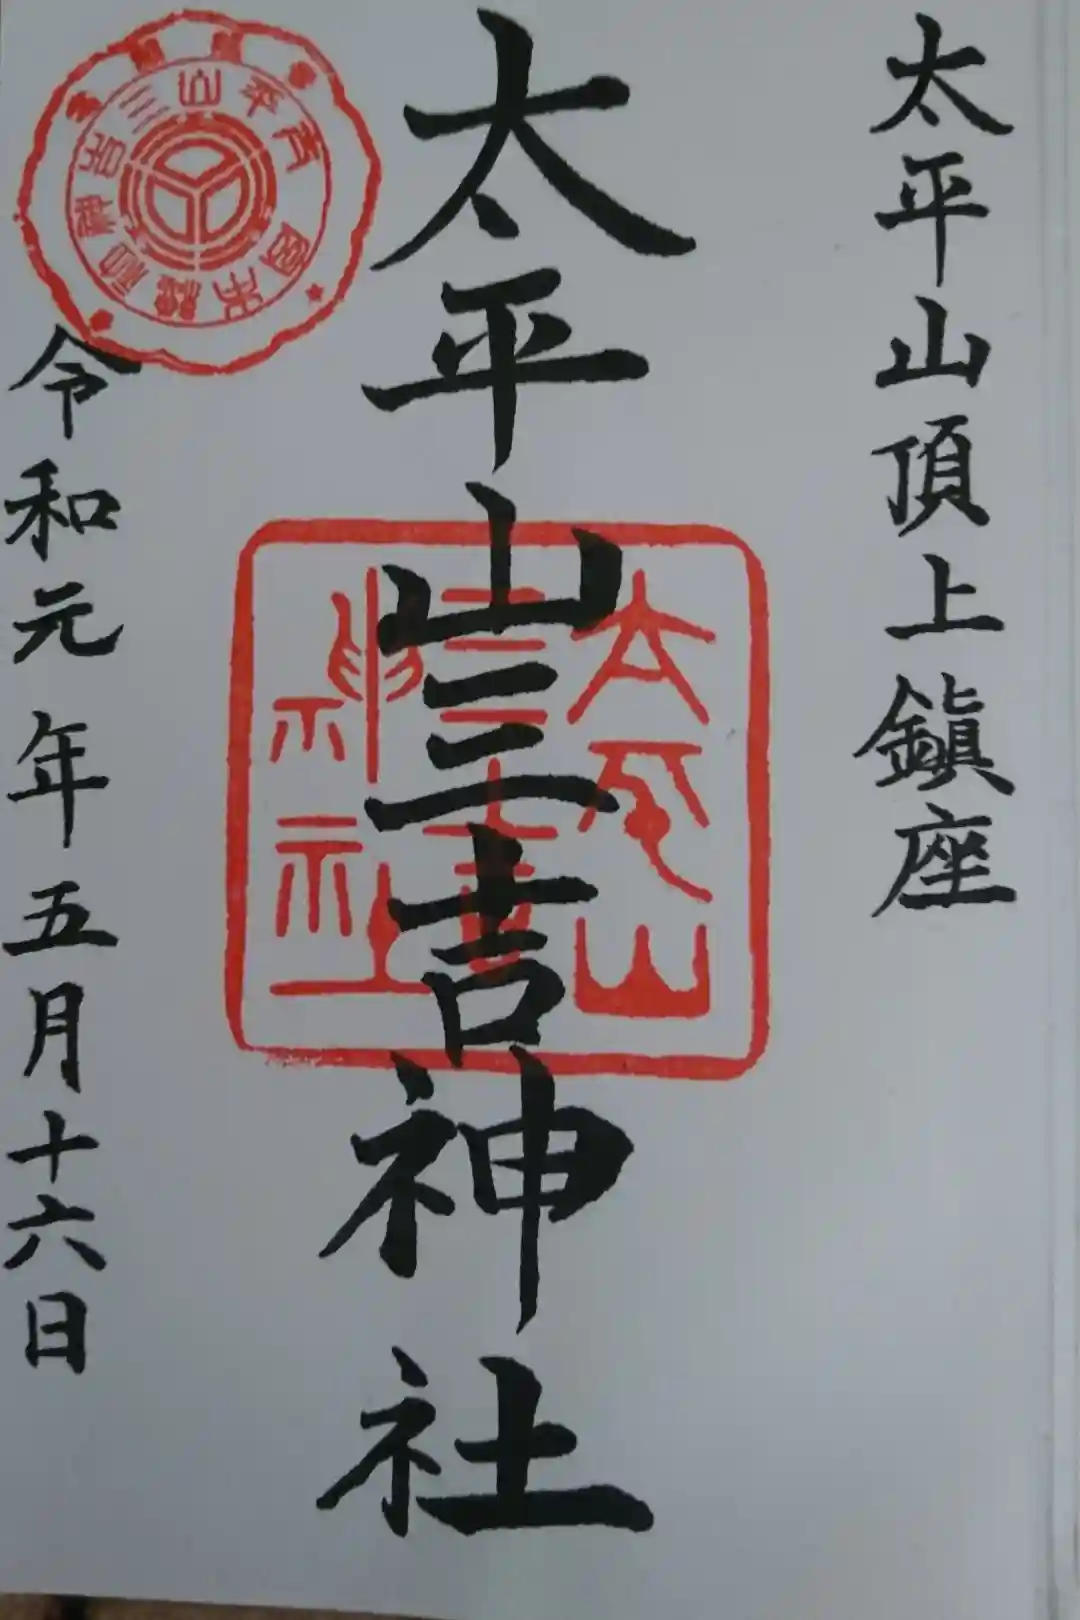 太平山頂上鎮座
太平山三吉神社
太平山
三吉
神社
令和元年五月十六日